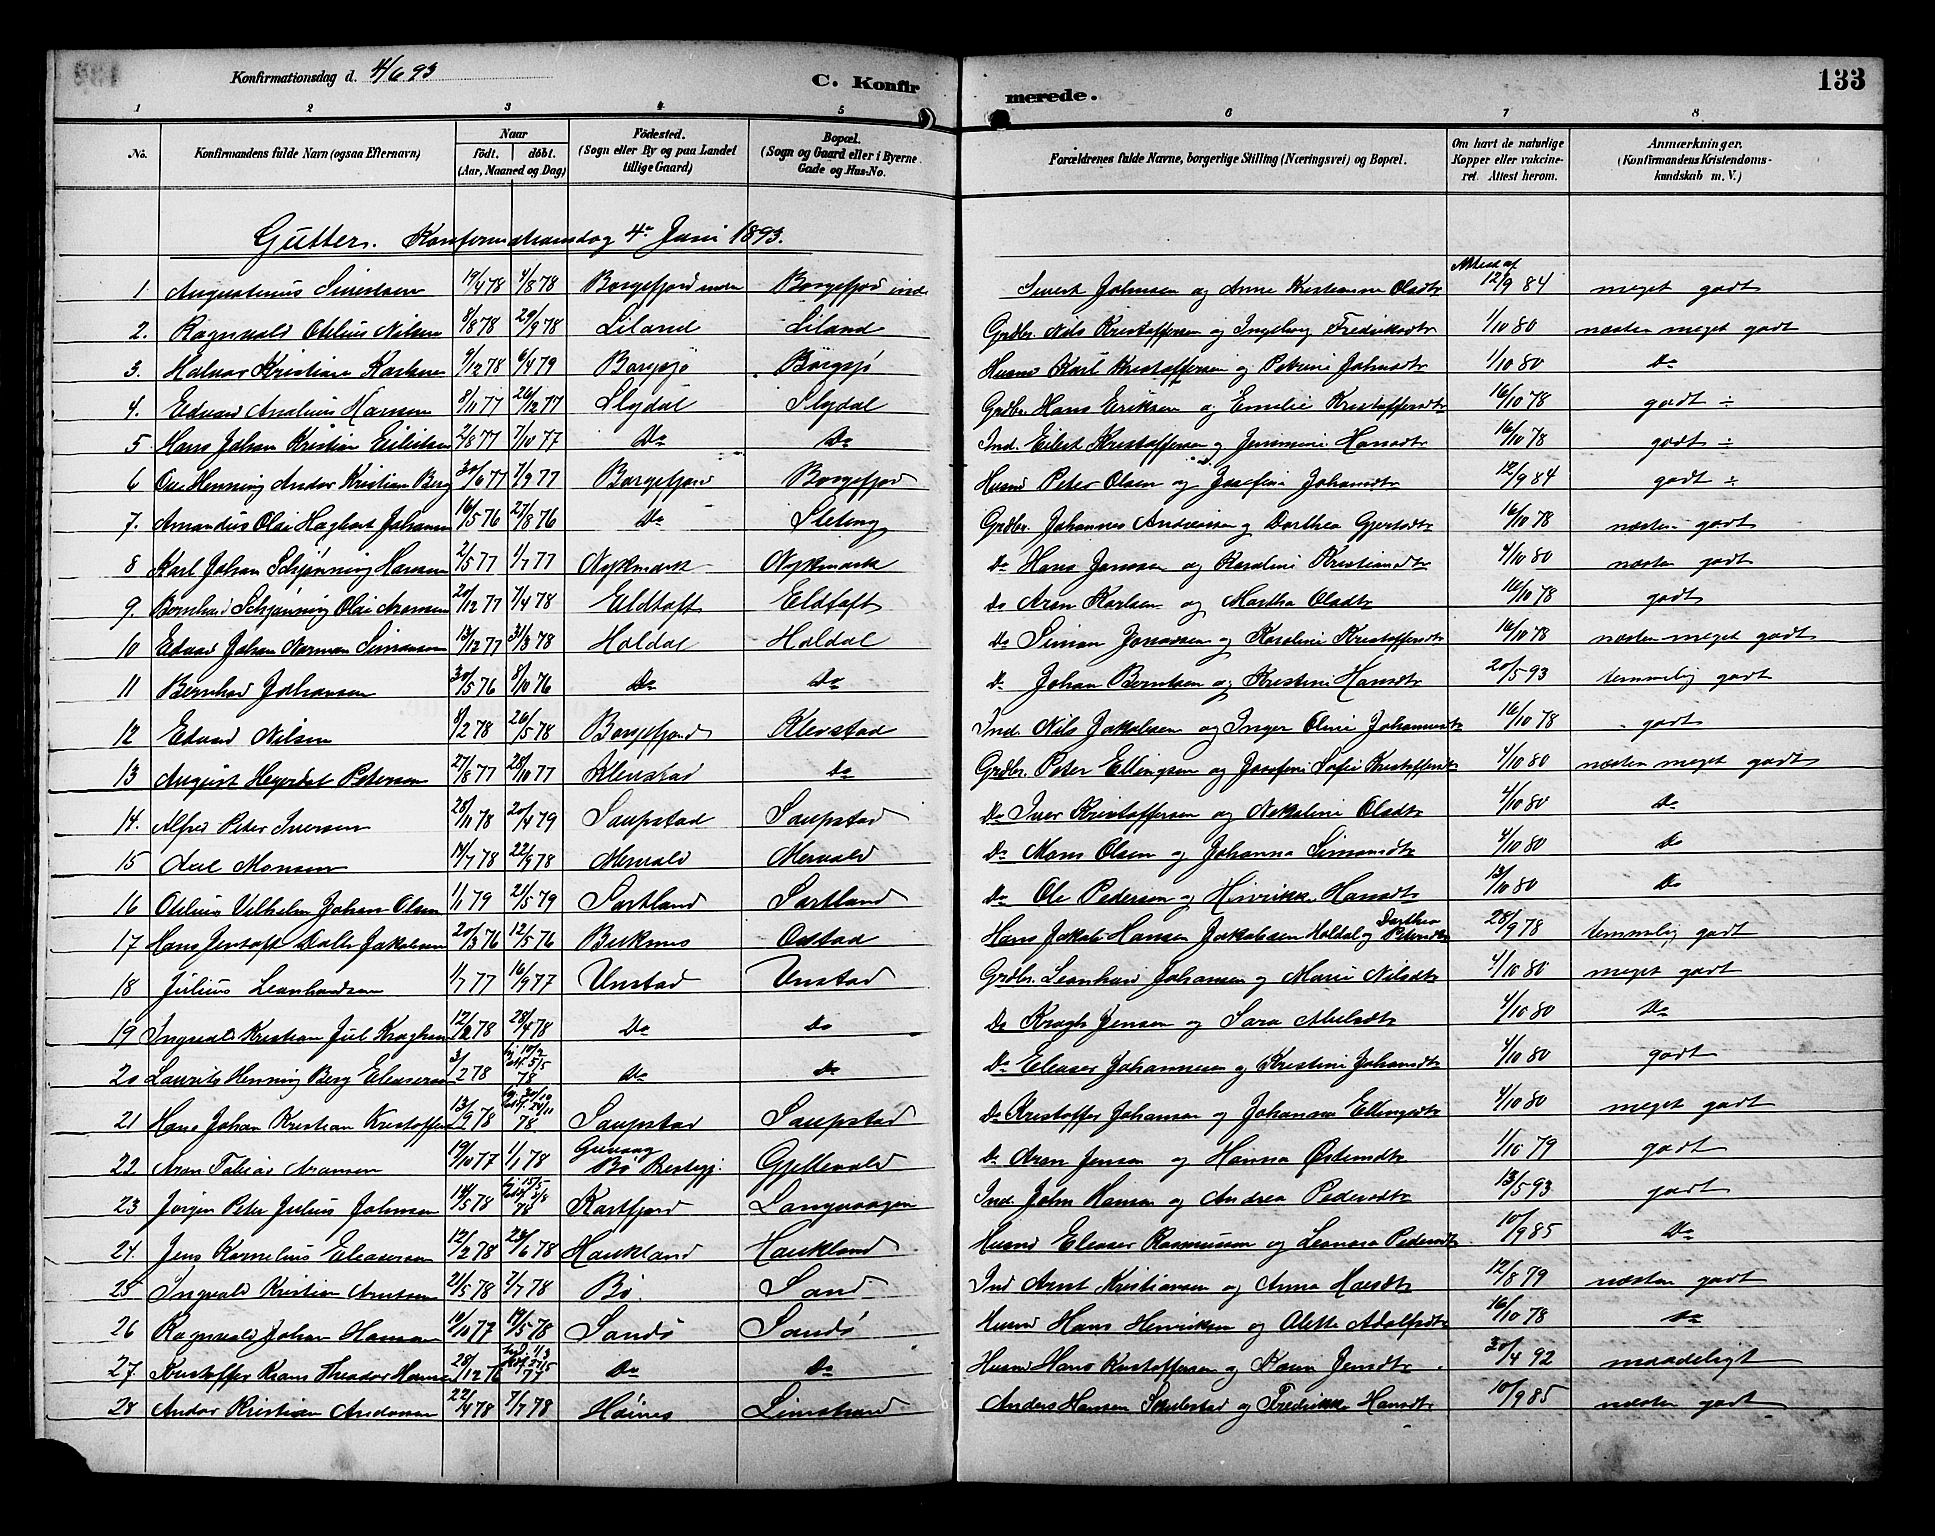 Konfirmationsdag d. 4/6 93
C. Konfirmerede.
133
1 2 3 4 5 6 7 8
No. | Konfirmandens fulde Navn (ogsaa Efternavn) | Naar født. døbt. (Aar, Maaned og Dag) | Fødested. (Sogn eller By og paa Landet tillige Gaard) | Bopæl. (Sogn og Gaard eller i Byerne Gade og Hus-No. | Forældrenes fulde Navne, borgerlige Stilling (Næringsvei) og Bopæl. | Om havt de naturlige Kopper eller vakcineret. Attest herom. | Anmærkninger. (Konfirmandens Kristendomskundskab m. V.)
Gutter. Konfirmationsdag 4de Juni 1893.
1 Augustinus Sivertsen 19/4 78 4/8 78 Borgefjord indre Borgefjord ind. Sivert Johnsen og Anne Kristianna Olsdtr Attest af 12/9 84 meget godt
2. Ragnvald Otelius Nilsen 8/8 78 29/9 78 Liland Liland Grdbr. Nils Kristoffersen og Ingeborg Fredriksdtr 1/10 80 næsten meget godt
3. Halvar Kristian Karlsen 9/12 78 6/4 79 Borgsjø Borgsjø Husmd Karl Kristoffersen og Petrine Johnsdtr 1/10 80 Do
4. Edvard Analius Hansen 8/11 77 26/12 77 Slydal Slydal Grdbr. Hans Eriksen og Emelie Kristoffersdtr 16/10 78 godt ÷
5 Hans Johan Kristian Eilertsen 2/8 77 7/10 77 Do Do Ind. Eilert Kristoffersen og Jensine Hansdtr 16/10 78 godt ÷
6 Ove Henning Andor Kristian Berg 30/6 77 7/9 77 Borgefjord Borgefjord Husmd Peter Olsen og Josefine Johansdtr 12/9 84 godt ÷
7. Amandus Olai Hagbart Johansen 16/5 76 27/8 76 Do Sleting Grdbr. Johannes Andreassen og Dorthea Gjertsdtr 16/10 78 næsten godt
8 Karl Johan Schjønning Hansen 2/5 77 1/7 77 Nykmark Nykmark Do Hans Jonsen og Karoline Kristiansdtr 4/10 80 næsten godt
9. Bernhard Schjønning Olai Aronsen 20/12 77 7/4 78 Eldtoft Eldtoft Do Aron Karlsen og Martha Olsdtr 16/10 78 godt
10 Edvard Johan Norman Simonsen 13/12 77 31/3 78 Holdal Holdal Do Simon Jonassen og Karoline Kristoffersdtr 16/10 78 næsten meget godt
11 Bernhard Johansen 30/5 76 8/10 76 Do Do Do Johan Berntsen og Kristine Hansdtr 20/5 93 temmelig godt
12 Edvard Nilsen 8/2 78 26/5 78 Borgefjord Klevstad Ind. Nils Jakobsen og Inger Oline Johannesdtr 16/10 78 godt
13 August Heyerdal Petersen 27/8 77 28/10 77 Klevstad Do Grdbr. Peter Ellingsen og Josefine Sofie Kristoffersdtr 4/10 80 næsten meget godt
14. Alfred Peter Iversen 28/11 78 20/4 79 Saupstad Saupstad Do Iver Kristoffersen og Nikoline Olsdtr 4/10 80 Do
15 Monsen 14/7 78 22/9 78 Mervold Mervold Do Mons Olsen og Johanna Simonsdtr 4/10 80 Do
16 Otelius Vilhelm Johan Olsen 1/1 79 21/5 79 Sortland Sortland Do Ole Pedersen og Henrikke Hansdtr 13/10 80 Do
17 Hans Jentoft Jakobsen 20/3 76 12/5 76 Buksnes Odstad Hans Jakob Hansen Jakobsen Holdal og Dorthea Petersdtr 28/9 78 temmelig godt
18 Julius Leonhardsen 1/7 77 16/9 77 Unstad Unstad Grdbr. Leonhard Johansen og Marie Nilsdtr 4/10 80 meget godt
19 Ingvald Kristian Juel Kraghsen 12/2 78 28/4 78 Do Do Do Kragh Jensen og Sara Abelsdtr 4/10 80 Do
20 Laurits Henning Berg Eleasersen 3/2 78 hj. 10/2 78 Do Do Do Eleaser Johannesen og Kristine Johansdtr 4/10 80 godt
21 Hans Johan Kristian Kristoffersen 13/9 78 hj. 78 Saupstad Saupstad Do Kristoffer Johansen og Johanna Ellingsdtr 4/10 80 meget godt
22 Aron Tobias Aronsen 19/10 77 1/1 78 Bø Gjellevold Do Aron Jensen og Hanna Østensdtr 1/10 79 godt
23 Jørgen Peter Julius Johnsen 14/5 78 hj. 15/5 78 Kartfjord Langvaagen Ind. John Hansen og Andrea Pedersdtr 13/5 93 godt
24. Jens Kornelius Eleasersen 12/2 78 23/6 78 Haukland Haukland Husmd Eleaser Rasmussen og Leonora Pedersdtr 10/9 85 Do
25 Ingvald Kristian Arntsen 21/5 78 7/7 78 Bø. Sand Ind Arnt Kristiansen og Anna Hansdtr 12/8 79 næsten godt
26 Ragnvald Johan Hansen 10/10 77 19/5 78 Sandø Sandø Husmd Hans Henriksen og Alette Adolfsdtr 16/10 78 Do
27. Kristoffer Krans Theodor Hansen 28/12 76 77 Do Do Husmd Hans Kristoffersen og Karen Jensdtr 30/4 92 maadeligt
28 Andor Kristian Andersen 22/4 78 7/7 78 Høines Limstrand Anders Hansen Skulestad og Fredrikke Hansdtr 10/9 85 næsten godt